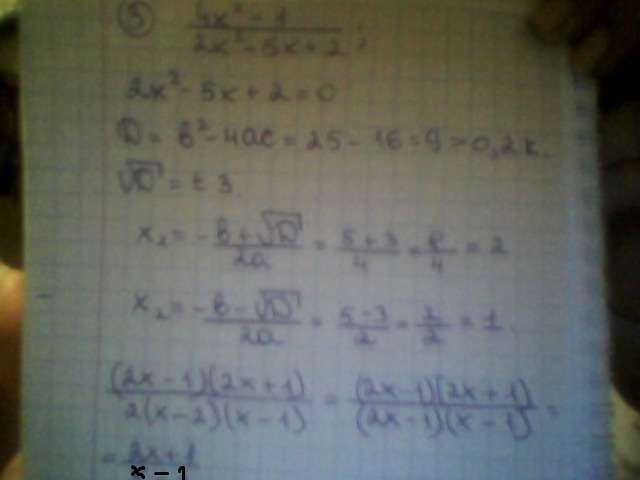 ③ (4x² - 1)/(2x² - 5x + 2);
2x² - 5x + 2 = 0
D = b² - 4ac = 25 - 16 = 9 > 0, 2k.
√D = ± 3.
x₁ = (-b + √D)/2a = (5 + 3)/4 = 8/4 = 2
x₂ = (-b - √D)/2a = (5 - 3)/2 = 2/2 = 1.
(2x - 1)(2x + 1)/2(x - 2)(x - 1) = (2x - 1)(2x + 1)/(2x - 1)(x - 1) =
= (2x + 1)/(x - 1)